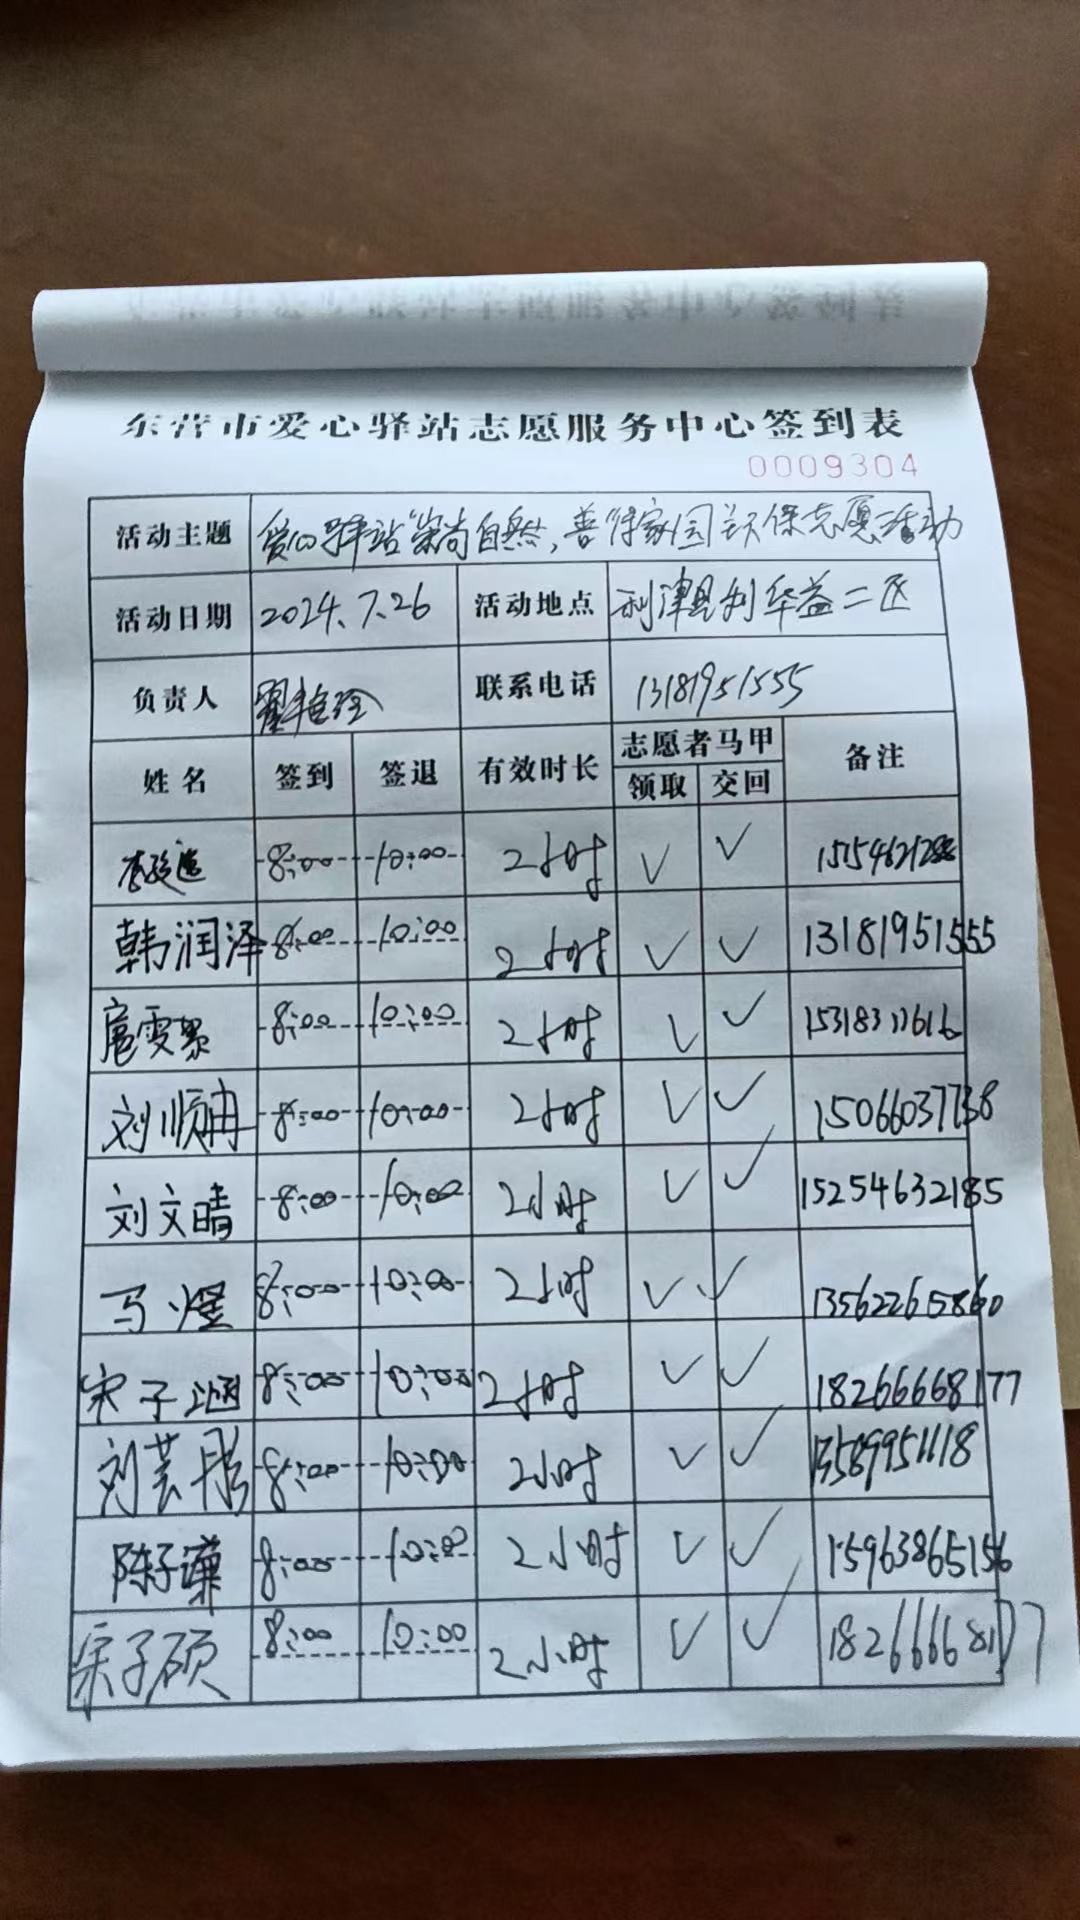 东营市爱心驿站志愿服务中心签到表
0009304
活动主题 爱心驿站"崇尚自然,善"待家园环保志愿活动
活动日期 2024.7.26 活动地点 利津县利华益二区
负责人 联系电话 13181951555
姓名 签到 签退 有效时长 志愿者马甲 备注
领取 交回
8:00 10:00 2小时 ✓ ✓
韩润泽 8:00 10:00 2小时 ✓ ✓ 13181951555
8:00 10:00 2小时 ✓ ✓
刘顺冉 8:00 10:00 2小时 ✓ ✓
刘文晴 8:00 10:00 2小时 ✓ ✓ 15254632185
马煜 8:00 10:00 2小时 ✓ ✓ 13562265860
宋子涵 8:00 10:00 2小时 ✓ ✓ 18266668177
刘芸彤 8:00 10:00 2小时 ✓ ✓
陈子谦 8:00 10:00 2小时 ✓ ✓ 15963865156
宋子硕 8:00 10:00 2小时 ✓ ✓ 18266668177